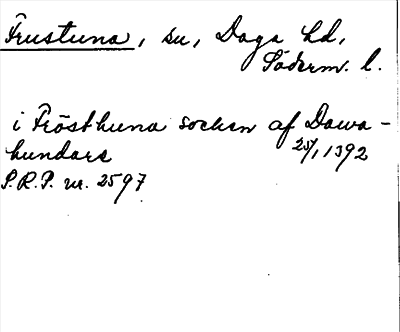 Frustuna, su, Daga hd,
Söderm. l.
i Frösthuna socken af Dawa-
hundars 25/1 1392
S.R.P. nr. 2597